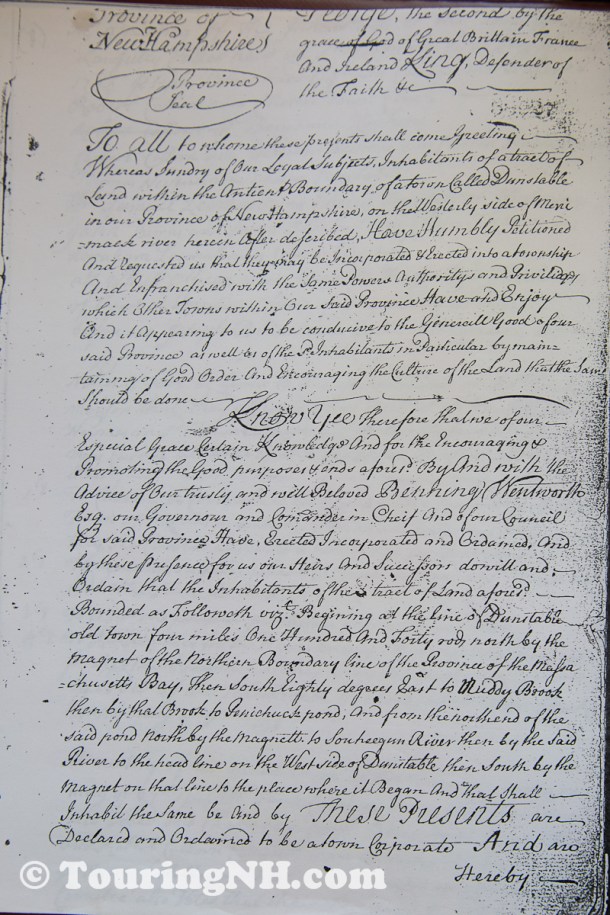 Province of } George, the Second by the
New Hampshire } grace of God of Great Brittain France
And Ireland King, Defender of
the Faith &c
Province
Seal
To all to whome these presents shall come Greeting
Whereas Sundry of Our Loyal Subjects, Inhabitants of a tract of
Land within the Antient Boundary, of a town Called Dunstable
in our Province of New Hampshire, on the Westerly side of Meri
=mack river herein after described, Have Humbly Petitioned
And requested us that they may be Incorporated & Erected into a township
And Enfranchised with the Same Powers Authoritys and Priviledges
which Other Towns within Our Said Province Have and Enjoy
And it Appearing to us to be conducive to the Generall Good of our
said Province as well as of the sd. Inhabitants in Particular by main=
taining of Good Order And Encouraging the Culture of the Land that the Same
Should be done
Know Yee therefore that we of our
Especial Grace Certain Knowledge And for the Encouraging &
Promoting the Good purposes & ends aforesd. By And with the
Advice of Our trusty and well Beloved Benning Wentworth
Esq. our Governour and Comander in Cheif And of our Council
for said Province Have, Erected Incorporated and Ordained, And
by these Presence for us our Heirs And Successors do will and
Ordain that the Inhabitants of the tract of Land aforesd.
Bounded as Followeth vizt. Begining at the line of Dunstable
old town four miles One Hundred And Forty rod, north by the
magnet of the Northern Boundary line of the Province of the Massa
=chusetts Bay, then South Eighty degrees East to Muddy Brook
then by that Brook to Penichuck pond, And from the north end of the
said pond North by the Magnett to Souheegun River then by the Said
River to the head line on the West side of Dunstable then South by the
Magnet on that line to the place where it Began And that Shall
Inhabit the Same be And by These Presents are
Declared and Ordained to be a town Corporate And are
Hereby
© TouringNH.com